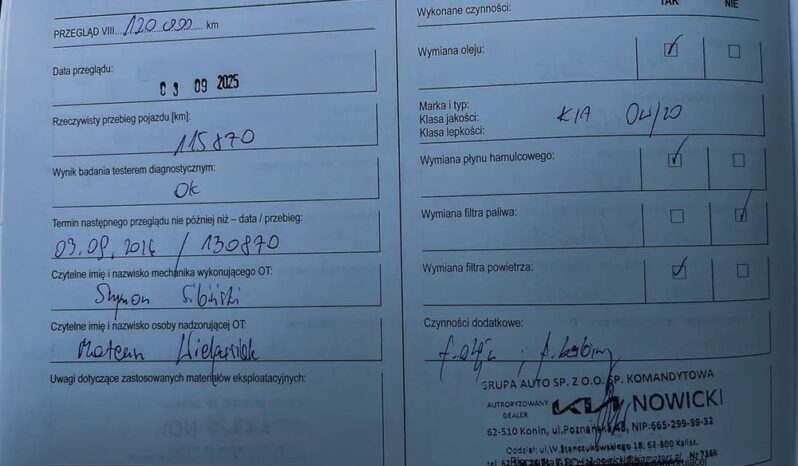 PRZEGLĄD VIII 120 000 km
Data przeglądu:
03 09 2025
Rzeczywisty przebieg pojazdu [km]:
115870
Wynik badania testerem diagnostycznym:
Ok
Termin następnego przeglądu nie później niż – data / przebieg:
03.09.2026 / 130870
Czytelne imię i nazwisko mechanika wykonującego OT:
Szymon
Czytelne imię i nazwisko osoby nadzorującej OT:
Mateusz
Uwagi dotyczące zastosowanych materiałów eksploatacyjnych:
Wykonane czynności: TAK NIE
Wymiana oleju:
Marka i typ:
Klasa jakości: KIA 0W/20
Klasa lepkości:
Wymiana płynu hamulcowego:
Wymiana filtra paliwa:
Wymiana filtra powietrza:
Czynności dodatkowe:
GRUPA AUTO SP. Z O.O. SP. KOMANDYTOWA
AUTORYZOWANY
DEALER
KIA NOWICKI
62-510 Konin, ul.Poznańska 48, NIP:665-299-99-32
Oddział: ul.W.Stanczukowskiego 18; 62-800 Kalisz,